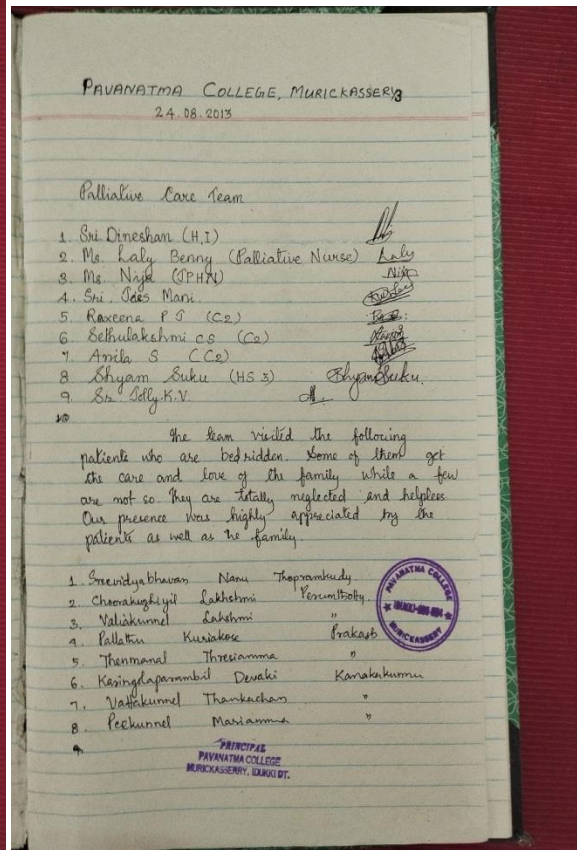 PAVANATMA COLLEGE, MURICKASSERY
24.08.2013
Palliative Care Team
1. Sri Dineshan (H.I)
2. Ms. Laly Benny (Palliative Nurse) Laly
3. Ms. Nija (JPHN) Nija
4. Sri. Joes Mani
5. Raxeena P J (C2)
6 Sethulakshmi CS (C2)
7. Anila S (C2)
8 Shyam Suku (HS 3) ShyamSuku.
9. Sr Jolly.K.V.
10
The team visited the following
patients who are bedridden. Some of them get
the care and love of the family while a few
are not so. They are totally neglected and helpless
Our presence was highly appreciated by the
patients as well as the family.
1. Sreevidyabhavan Nanu Thopramkudy
2. Choorakuzhiyil Lakhshmi Perumthotty.
3. Valiakunnel Lakshmi "
4. Pallathu Kuriakose Prakash
5. Thenmanal Thresiamma "
6. Karingolaparambil Devaki Kanakakunnu
7. Vattakunnel Thankachan "
8. Peekunnel Mariamma "
9.
PAVANATMA COLLEGE
MURICKASSERY
PRINCIPAL
PAVANATMA COLLEGE
MURICKASSERRY, IDUKKI DT.